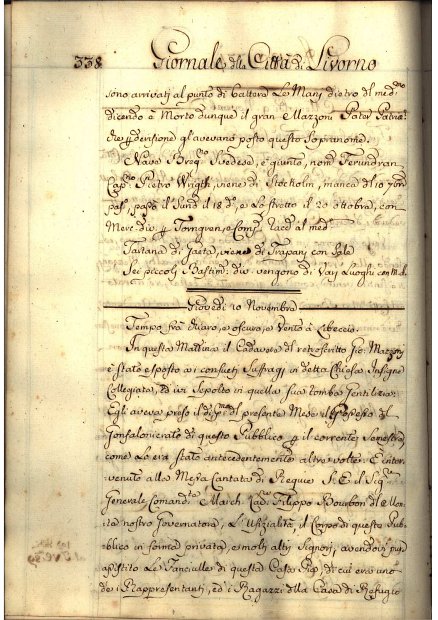 338. Giornale della Città di Livorno
sono arrivati al punto di battere Le Mani dietro al med.mo
dicendo è Morto dunque il gran Mazzoni Pater Patriæ
che derisione gl'avevano posto questo Sopranome.
Nave Svedese, è giunto, nom.
Cap.no Pietro Wrigth, viene di Stockolm, manca dal 10 7bre
pas.o, passò il Sund il 18 d.o, e Lo Stretto il 20 ottobre, con
Merc. div. Torngren, e Comp. Racc. al med.
Tartana di Gaeta, viene di Trapani con Sale
Sei piccoli Bastim. div. vengono di Varj Luoghi
Giovedi 10 Novembre
Tempo frà chiaro, e oscuro, e Vento à Libeccio.
In questa Mattina il Cadavere del retroscritto Sig. Mazzoni
è Stato esposto ai consueti Suffragj in detta Chiesa Insigne
Collegiata, ed ivi Sepolto in quella Sua tomba Gentilizia:
Egli aveva preso il dì p.mo del presente Mese il Possesso del
Gonfalonierato di questo Pubblico il corrente Semestre
come Lo era stato antecedentemente altre volte. È inter-
venuto alla Messa Cantata di Requie S. E. il Sig.
Generale Comand. March. Cav. Filippo Bourbon del Mon-
te nostro Governatore, L'Ufizialità, il Corpo di questo Pub-
blico in forma privata, e molti altri Signori, avendovi pur
assistito Le Fanciulle di questa Casa Pia, di cui era uno
dei Rappresentanti, ed i Ragazzi della Casa di Refugio